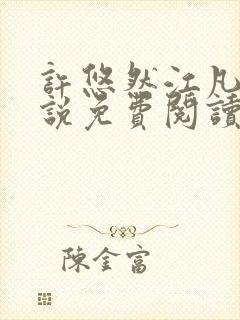 許悠然江凡
說免費閱讀
陳金富